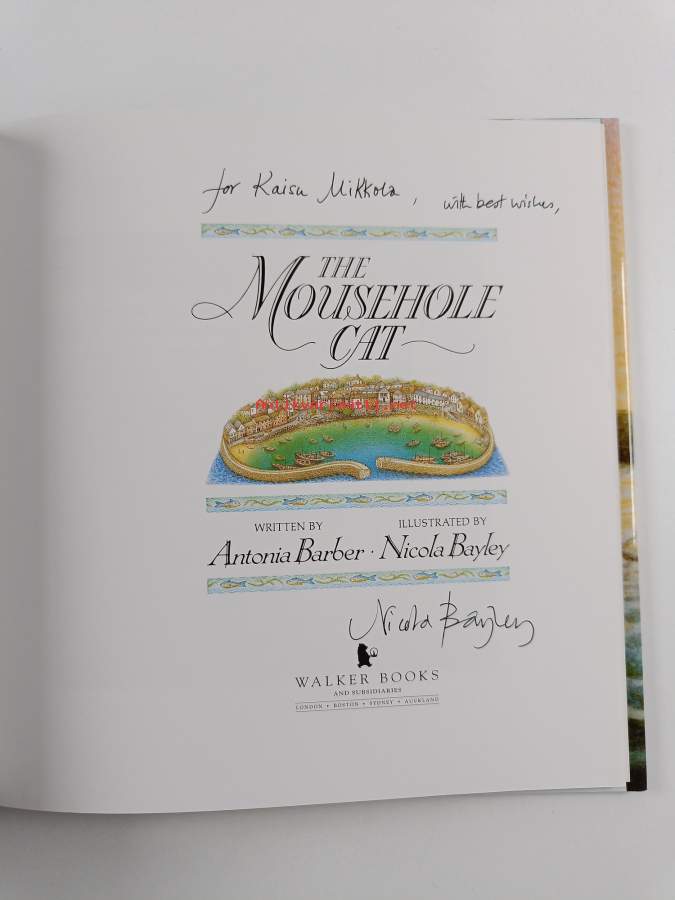 for Kaisu Mikkola, with best wishes,
THE
MOUSEHOLE
CAT
Antikvariaatti.net
WRITTEN BY ILLUSTRATED BY
Antonia Barber · Nicola Bayley
Nicola Bayley
WALKER BOOKS
AND SUBSIDIARIES
LONDON • BOSTON • SYDNEY • AUCKLAND